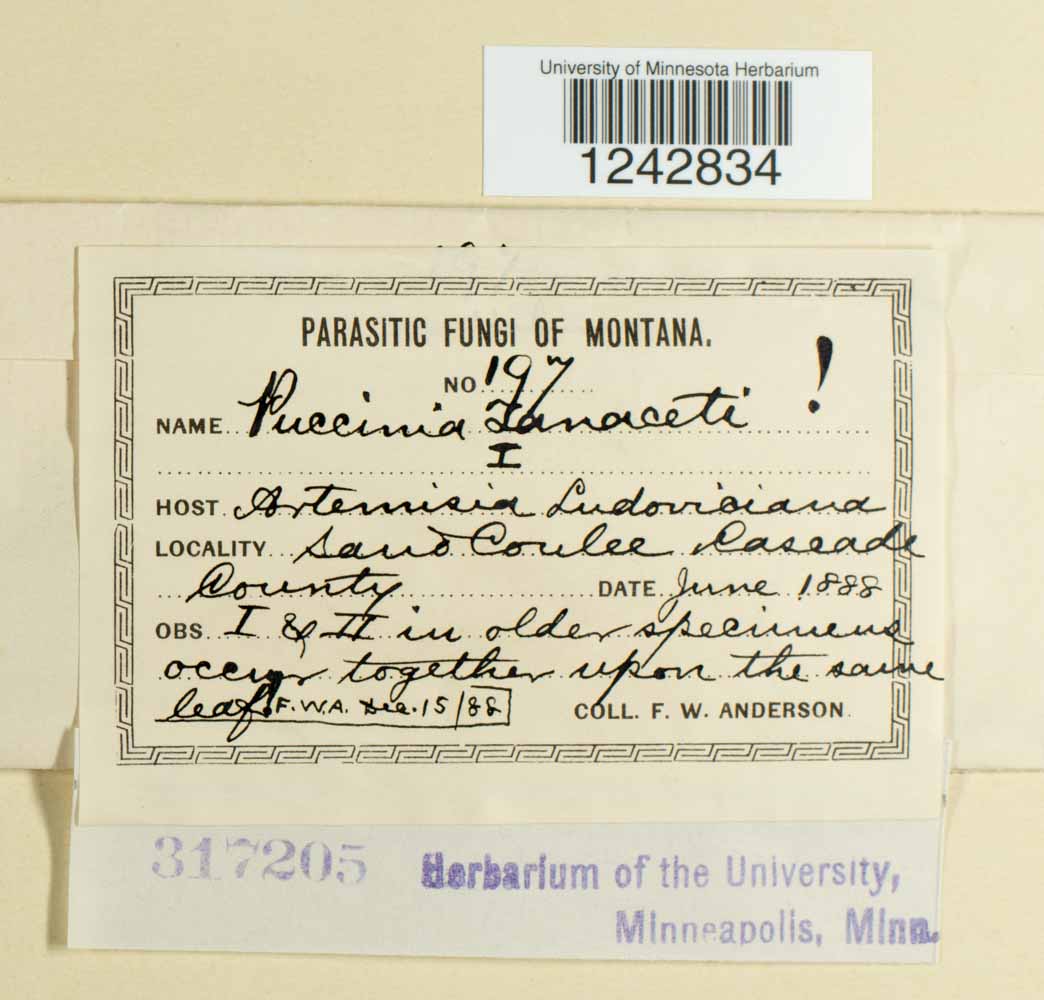 University of Minnesota Herbarium
1242834
PARASITIC FUNGI OF MONTANA.
NO. 197
NAME. Puccinia Tanaceti !
I
HOST. Artemisia Ludoviciana
LOCALITY. Sand Coulee Cascade
County DATE June 1888
OBS. I & II in older specimens
occur together upon the same
leaf! F.W.A. Dec. 15/88 COLL. F. W. ANDERSON.
317205 Herbarium of the University,
Minneapolis, Minn.